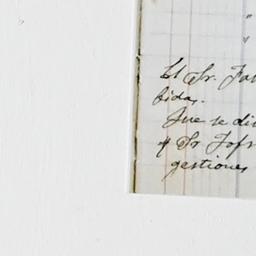 El Sr. Fa
bida.
Que se di
y Sr Tofr
gestiones